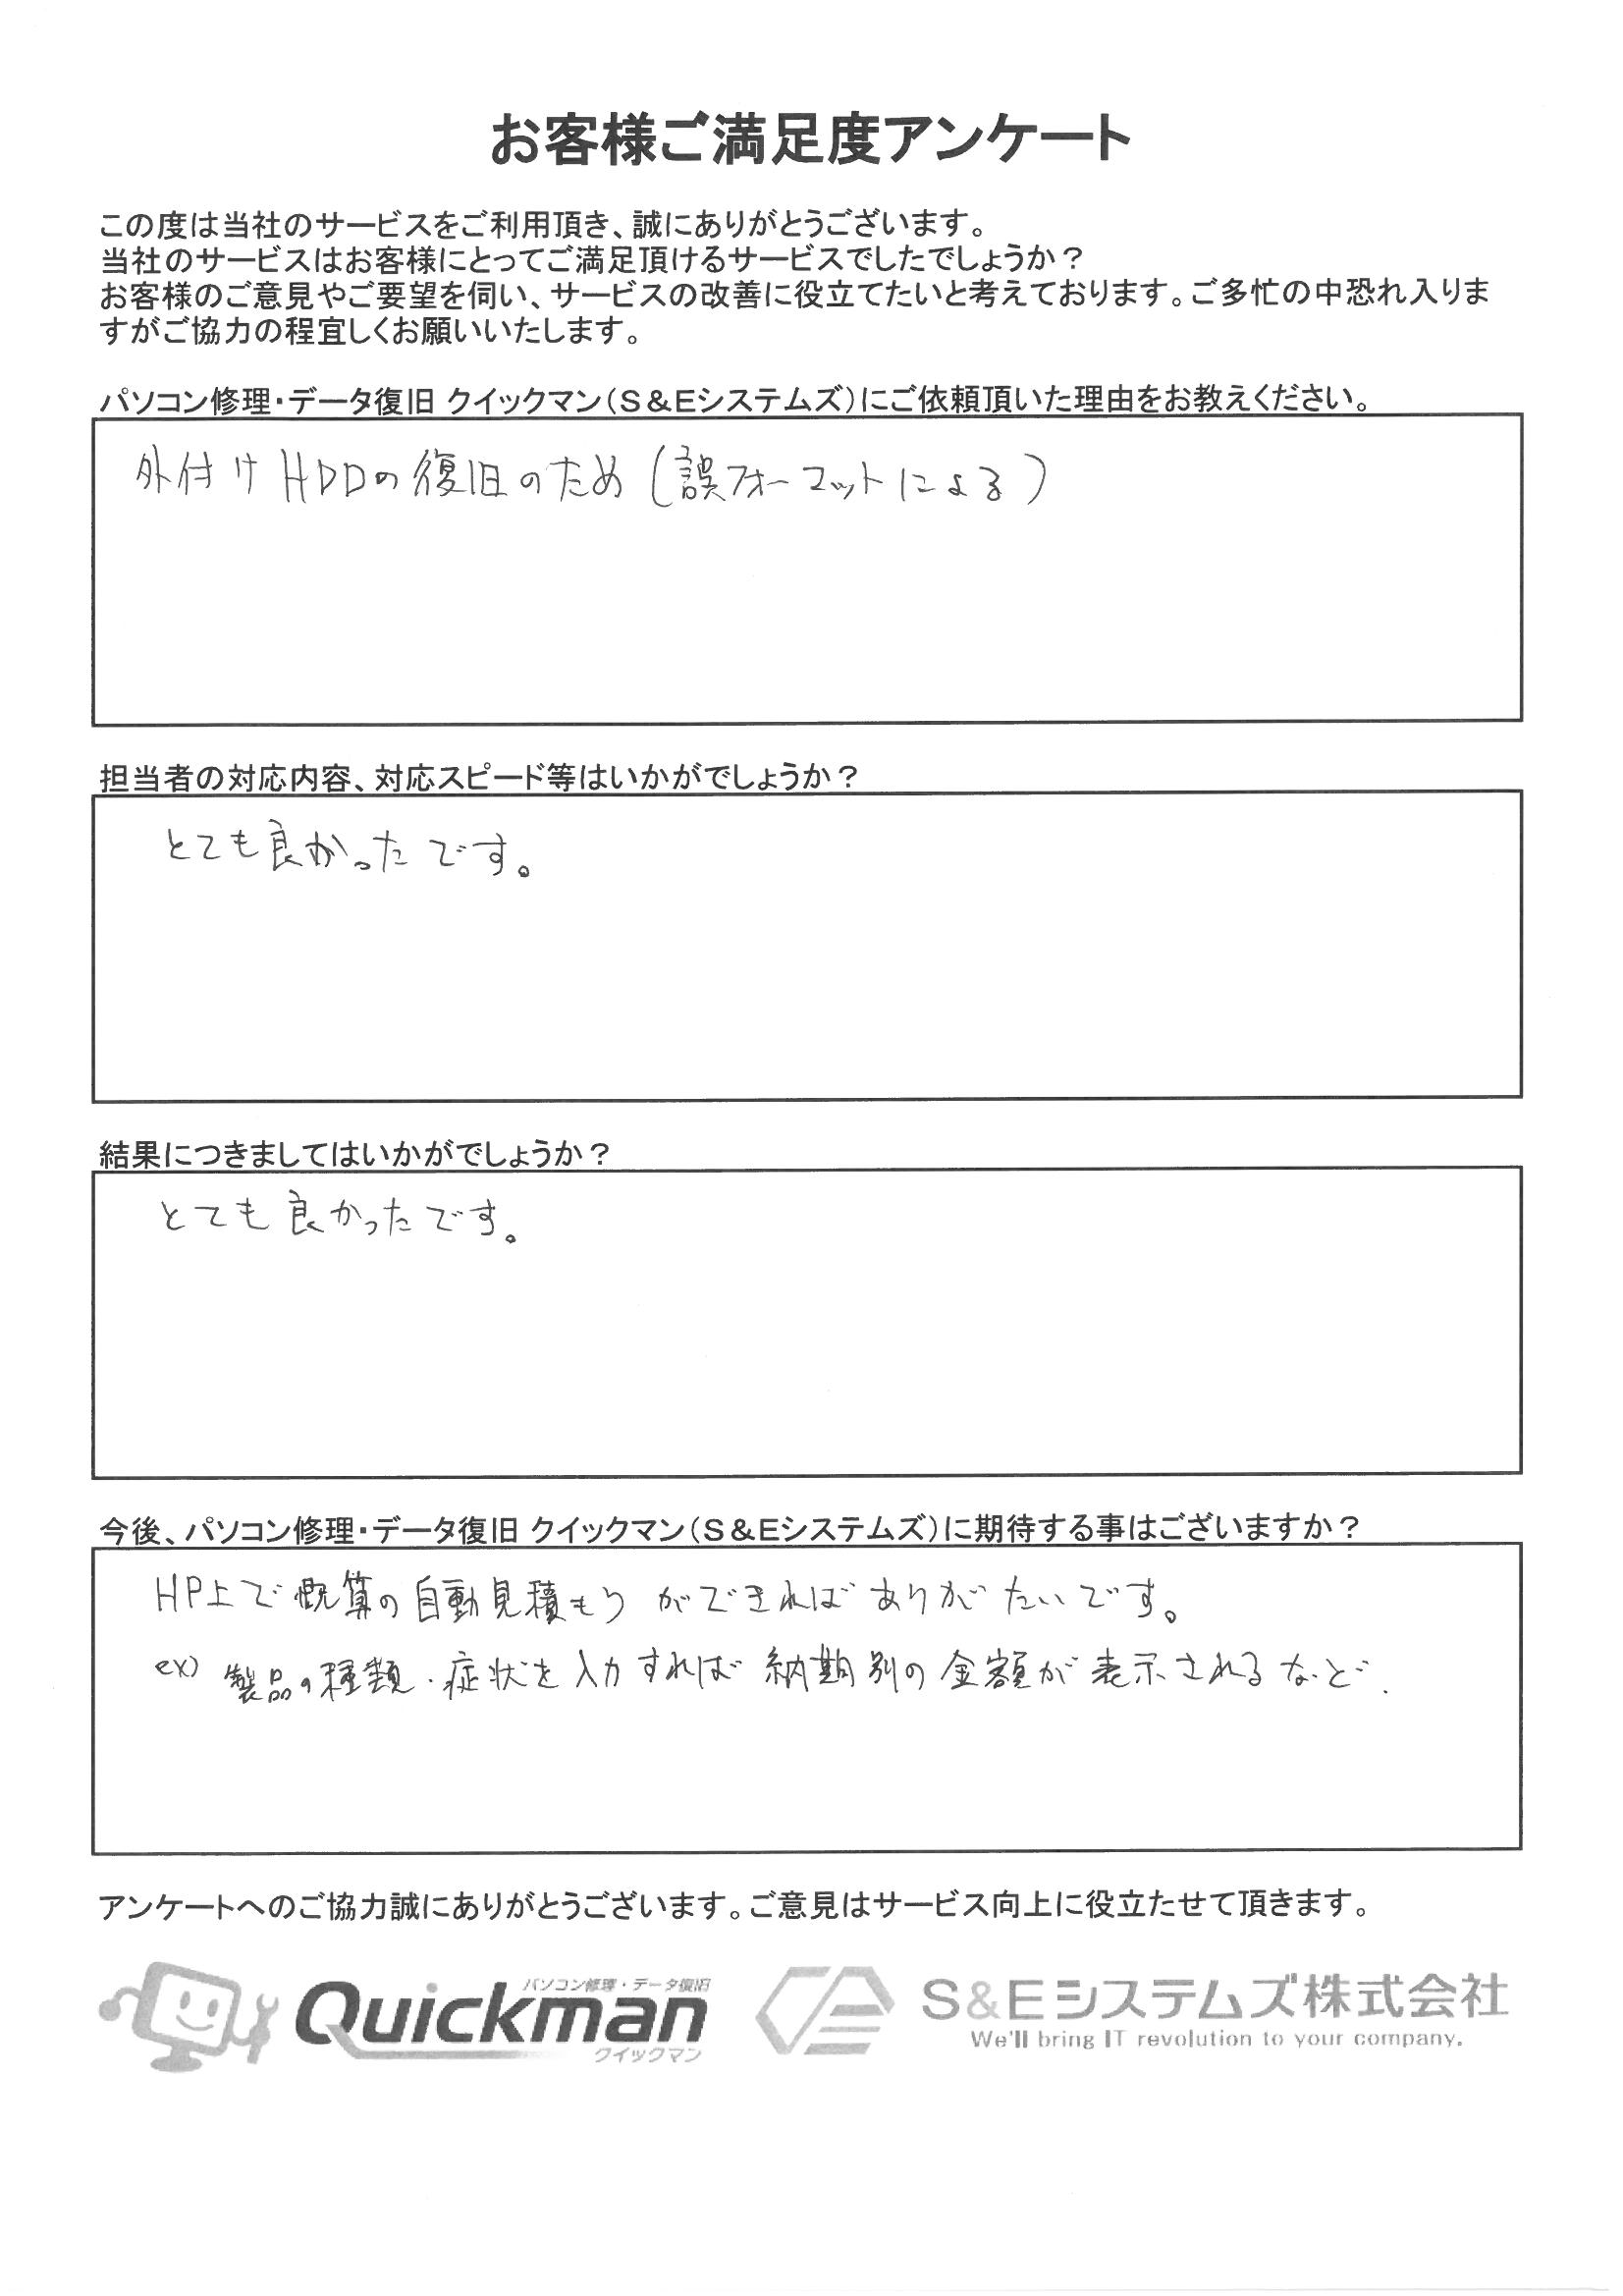 お客様ご満足度アンケート
この度は当社のサービスをご利用頂き、誠にありがとうございます。
当社のサービスはお客様にとってご満足頂けるサービスでしたでしょうか?
お客様のご意見やご要望を伺い、サービスの改善に役立てたいと考えております。ご多忙の中恐れ入りま
すがご協力の程宜しくお願いいたします。
パソコン修理・データ復旧 クイックマン(S&Eシステムズ)にご依頼頂いた理由をお教えください。
外付けHDDの復旧のため(誤フォーマットによる)
担当者の対応内容、対応スピード等はいかがでしょうか?
とても良かったです。
結果につきましてはいかがでしょうか?
とても良かったです。
今後、パソコン修理・データ復旧 クイックマン(S&Eシステムズ)に期待する事はございますか?
HP上で概算の自動見積もりができればありがたいです。
ex) 製品の種類・症状を入力すれば納期別の金額が表示されるなど.
アンケートへのご協力誠にありがとうございます。ご意見はサービス向上に役立たせて頂きます。
パソコン修理・データ復旧
Quickman
クイックマン
S&Eシステムズ株式会社
We'll bring IT revolution to your company.